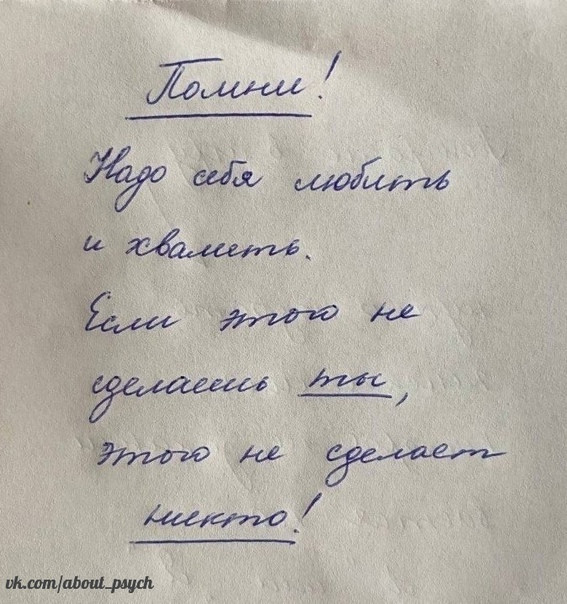 Помни!
Надо себя любить
и хвалить.
Если этого не
сделаешь ты,
этого не сделает
никто!
vk.com/about_psych